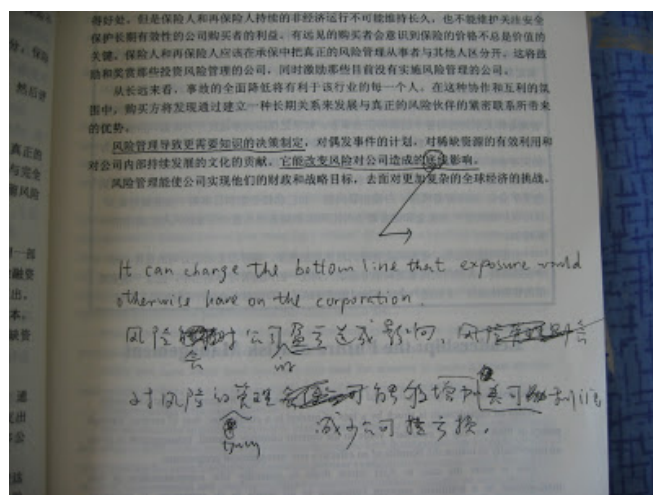 得好处。但是保险人和再保险人持续的非经济运行不可能维持长久，也不能维护关注安全
保护长期有效性的公司购买者的利益。有远见的购买者会意识到保险的价格不总是价值的
关键。保险人和再保险人应该在承保中把真正的风险管理从事者与其他人区分开。这将鼓
励和奖赏那些投资风险管理的公司，同时激励那些目前没有实施风险管理的公司。
从长远来看，事故的全面降低将有利于该行业的每一个人。在这种协作和互利的氛
围中，购买方将发现通过建立一种长期关系来发展与真正的风险伙伴的紧密联系所带来
的优势。
风险管理导致更需要知识的决策制定，对偶发事件的计划，对稀缺资源的有效利用和
对公司内部持续发展的文化的贡献。它能改变风险对公司造成的底线影响。
风险管理能使公司实现他们的财政和战略目标，去面对更加复杂的全球经济的挑战。
It can change the bottom line that exposure would
otherwise have on the corporation.
风险会对公司盈亏造成影响，风险
对风险的管理可能够增加
减少公司亏损。
分，保险
然后使
真正的
与完全
前风险
部
融资
出。
本，
通
支出
公